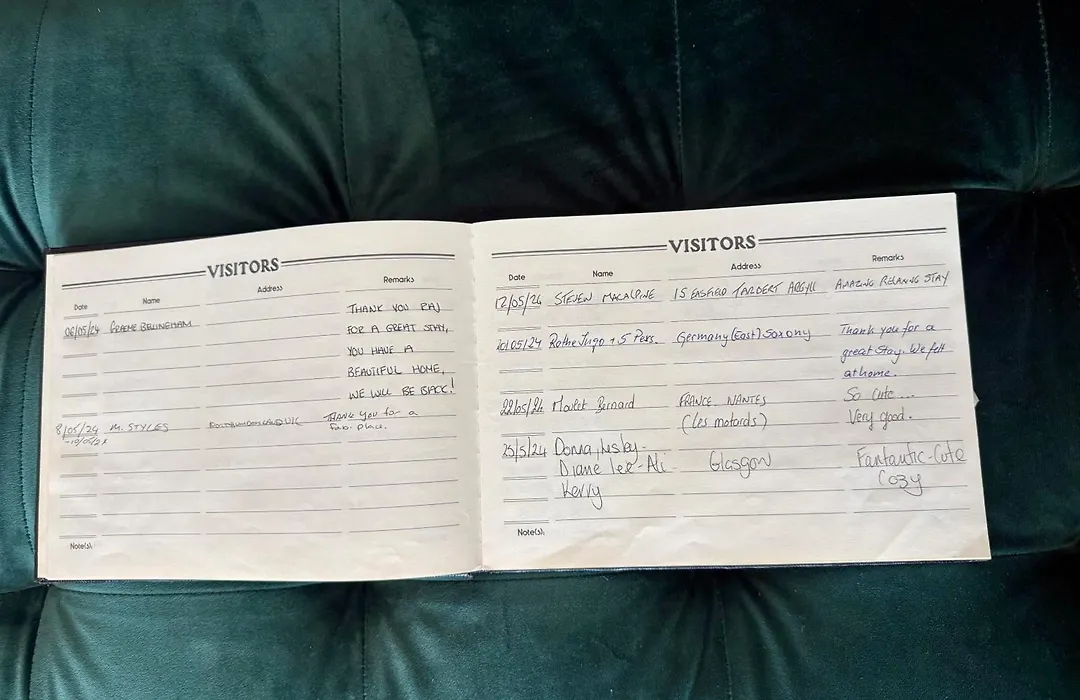 VISITORS
Date Name Address Remarks
THANK YOU RAJ
06/05/24 GRAEME BELLINGHAM FOR A GREAT STAY,
YOU HAVE A
BEAUTIFUL HOME,
WE WILL BE BACK!
8/05/24 M. STYLES THANK you for a
Fab. place.
Note(s):
VISITORS
Date Name Address Remarks
12/05/24 STEVEN MACALPINE 15 EASFIELD TARBERT ARGYLL AMAZING RELAXING STAY
20.05/24 Rothe Ingo + 5 Pers. Germany (East) Saxony Thank you for a
great Stay. We felt
at home.
22/05/24 Moulet Bernard FRANCE NANTES So cute...
(les motards) Very good.
25/5/24 Donna, Lesley-
Diane Lee-Ali Glasgow Fantantic-Cute
Kerry Cozy
Note(s):